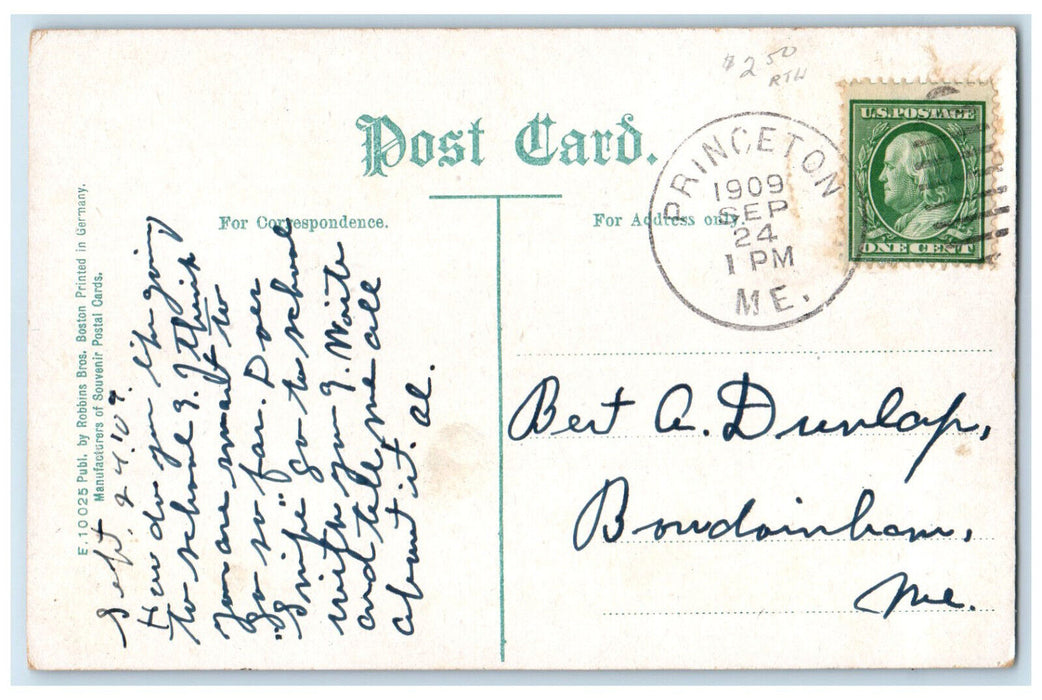 $2.50
RTH
Post Card.
For Correspondence.
For Address only.
PRINCETON
1909
SEP
24
1 PM
ME.
U.S. POSTAGE
ONE CENT
E. 10025 Publ. by Robbins Bros. Boston Printed in Germany.
Manufacturers of Souvenir Postal Cards.
Sept. 24.'09.
How do you like going
to school? I think
You are smart to
go so far. Does
"Snipe" go to school
with you? Write
and tell me all
about it. Al.
Bert A. Dunlap,
Bowdoinham,
Me.